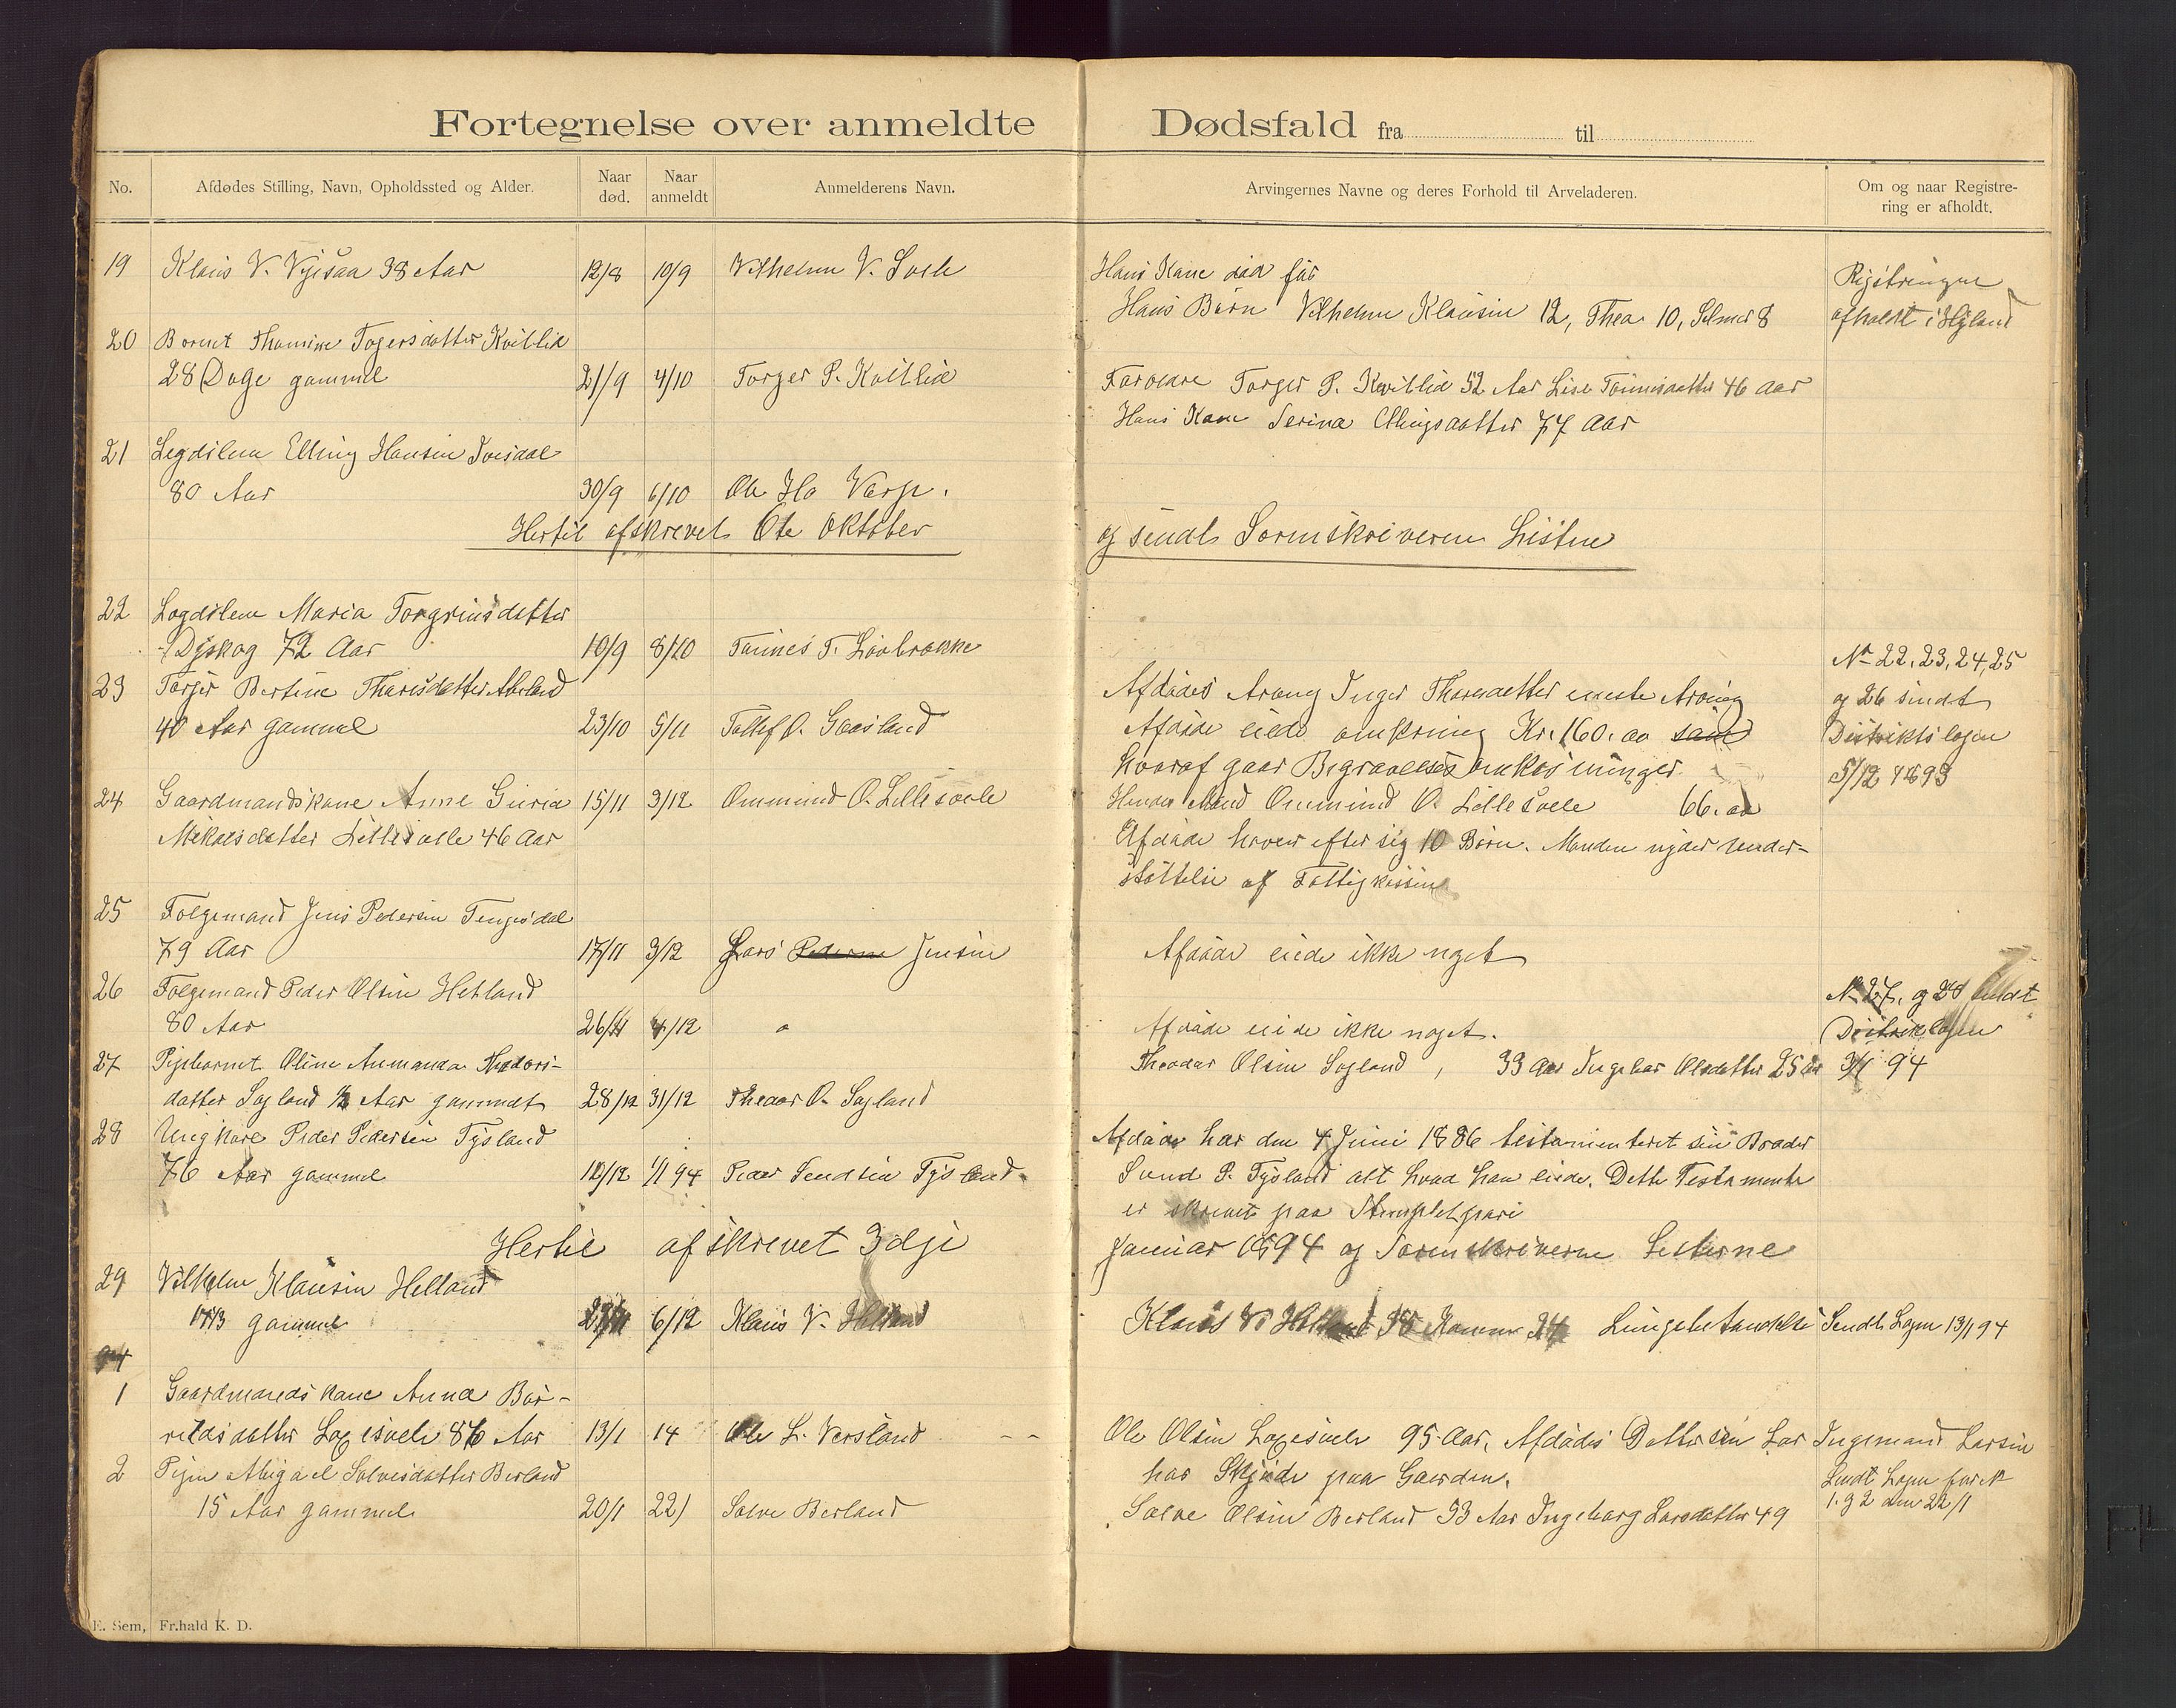 Fortegnelse over anmeldte Dødsfald fra til
No. Afdødes Stilling, Navn, Opholdssted og Alder. Naar død. Naar anmeldt Anmelderens Navn. Arvingernes Navne og deres Forhold til Arveladeren. Om og naar Registrering er afholdt.
19 Klaus V. 38 Aar 12/8 10/9 Vilhelm V.
Hans Kone død før
Hans Børn Vilhelm Klausen 12, Thea 10, Selmer 8
Registringen
afholdt i Heiland
20 Barnet Thomine Togersdatter Kvitlid
28 Dage gammel 21/9 4/10 Torger P. Kvitlid
Forældre Torger P. Kvitlid 52 Aar Lise Tønnesdatter 46 Aar
Hans Kone Serina Ellingsdatter 77 Aar
21 Legdslem Elling Hansen Ivesdal
80 Aar 30/9 6/10 Ole Varp.
Hertil afskrevet 6te Oktober
og sendt Sorenskriveren Listen
22 Legdslem Maria Torgrimsdatter
Dyskog 72 Aar 10/9 8/10 Tønnes T. Løvbrække
23 Torger Bertine Tharesdatter
40 Aar gammel 23/10 5/11 Tollef O. Gaasland
Afdødes Arving Inger eneste Arving
Afdøde eiede omkring Kr. 160.00
hvoraf gaar Begravelses omkostninger
24 Gaardmandskone Anne Guria 15/11 3/12 Ommund O. Lillesvele
Mikalsdatter Lillesvele 46 Aar
Hendes Mand Ommund O. Lillesvele 66.
Afdøde haver efter sig 10 Børn. Manden nyder under-
støttelse af Fattigkassen
No 22, 23, 24, 25
og 26 sendt
Distriktslogen
5/12 1893
25 Folgemand Jens Pedersen Tengesdal
79 Aar 17/11 3/12 Lars Pedersen Jensen
Afdøde eiede ikke noget
26 Folgemand Peder Olsen Hetland
80 Aar 26/11 4/12
Afdøde eiede ikke noget.
No 27. og 28 sendt
3/1 94
27 Pigebarnet Oline Anmanda Theodors-
datter Søyland ½ Aar gammelt 28/12 31/12 Theodor O. Søyland
Theodor Olsen Søyland, 33 Aar Ingebor Olsdatter 25
28 Ungkarl Peder Pedersen Tysland
76 Aar gammel 12/12 1/1 94 Peder Sendsen Tysland
Afdøde har den 4 Juni 1886 testamenteret sin Broder
Svend P. Tysland alt hvad han eiede. Dette Testamente
er skrevet paa
Hertil afskrevet 3dje
Januar 1894 og Sorenskriveren Listerne
29 Vilhelm Klausen Helland
gammel 6/12 Klaus V. Helland
Klaus V. Helland 38 Konen 24 Lungebetændelse Sendt 13/1 94
94
1 Gaardmands kone Anna
datter 86 Aar 13/1 14 Ole L. Versland
Ole Olsen 95 Aar, Afdødes Datter Ingemand Larsen
har Skjøde paa Gaarden.
2 Pigen Abigael Salvesdatter Berland
15 Aar gammel 20/1 22/ Salve Berland
Salve Olsen Berland 53 Aar Ingeborg Larsdatter 49
Sendt
1. g 2 den 22/1
E. Sem, Fr.hald K. D.